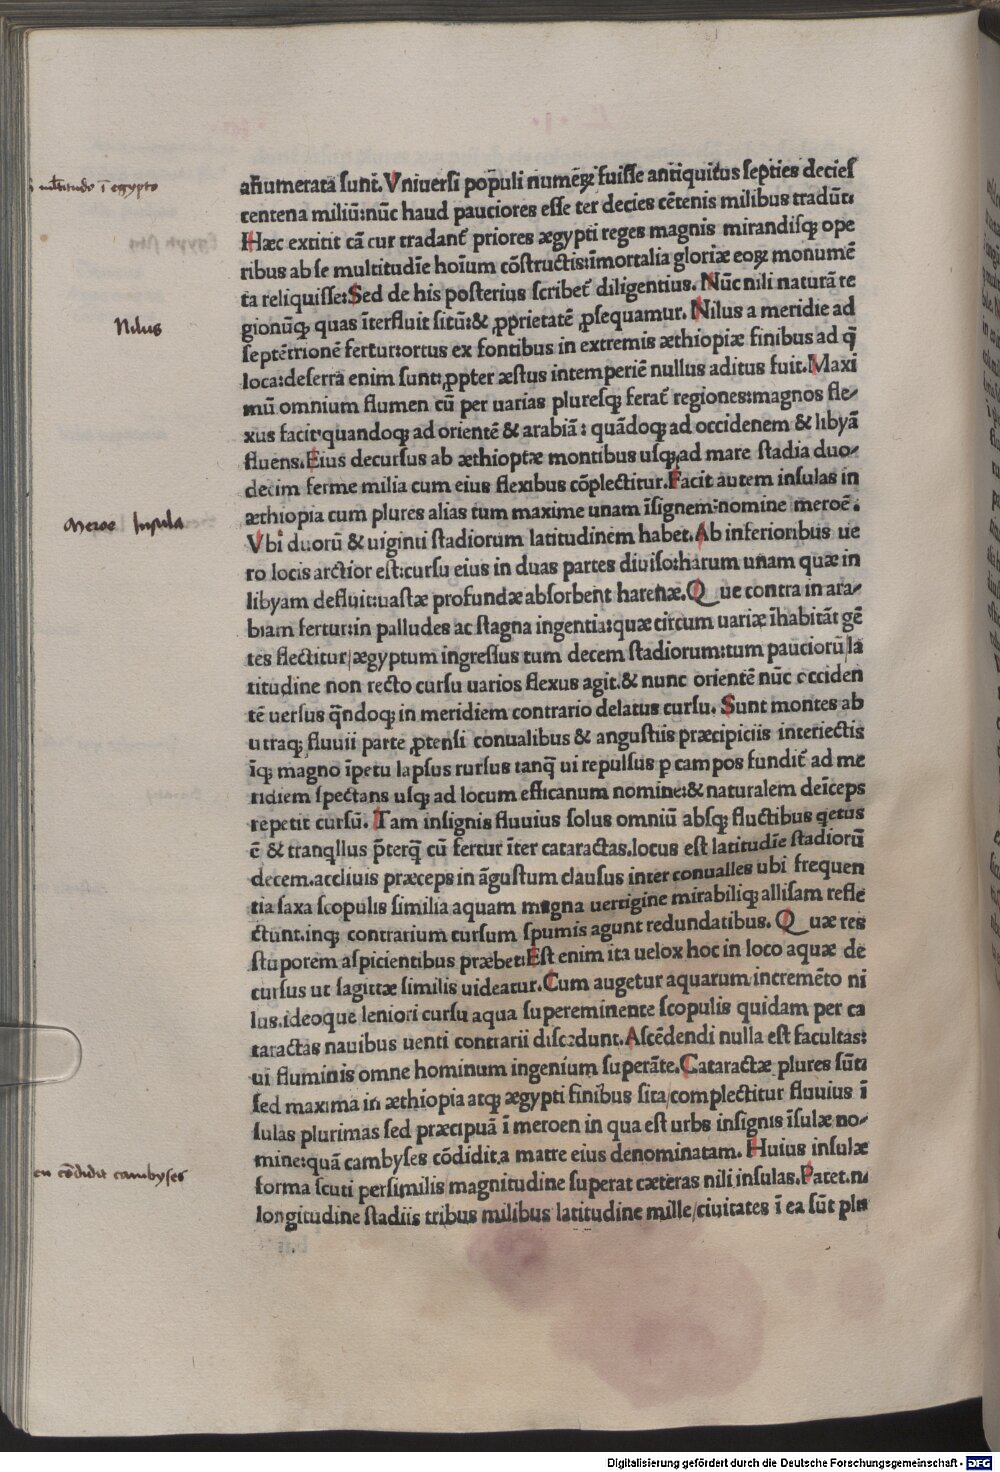 ī multitudo ī egypto
añumerata sunt̃. Vniuersi populi numeꝝ fuisse antiquitus septies decies
centena miliū:nūc haud pauciores esse ter decies cētenis milibus tradūt:
Hæc extitit cā cur tradant̃ priores ægypti reges magnis mirandisq; ope
ribus ab se multitudīe hoīum cōstructis:īmortalia gloriæ eoꝝ monumē
ta reliquisse:Sed de his posterius scribet̃ diligentius. Nūc nili naturā re
gionūq; quas īterfluit sitū:& ꝓprietatē ꝓsequamur. Nilus a meridie ad
Nilus
septētrionē fertur:ortus ex fontibus in extremis æthiopiæ finibus ad q̄
loca:deserta enim sunt:ꝓpter æstus intemperiē nullus aditus fuit.Maxi
mū omnium flumen cū per uarias pluresq; ferat̃ regiones:magnos fle⸗
xus facit:quandoq; ad orientē & arabiā : quādoq; ad occidenem & libyā
fluens.Eius decursus ab æthioptæ montibus usq; ad mare stadia duo⸗
decim ferme milia cum eius flexibus cōplectitur.Facit autem insulas in
æthiopia cum plures alias tum maxime unam īsignem:nomine meroē :
Meroe Insula
Vbi duorū & uiginti stadiorum latitudinem habet.Ab inferioribus ue
ro locis arctior est:cursu eius in duas partes diuiso:harum unam quæ in
libyam defluit:uastæ profundæ absorbent harenæ.Q ue contra in ara⸗
biam fertur:in palludes ac stagna ingentia:quæ circum uariæ īhabitāt gē
tes flectitur/ægyptum ingressus tum decem stadiorum:tum pauciorū/la
titudine non recto cursu uarios flexus agit.& nunc orientē nūc occiden
tē uersus q̄ndoq; in meridiem contrario delatus cursu. Sunt montes ab
utraq; fluuii parte ꝓtensi conualibus & angustiis præcipiciis interiectis
īq; magno īpetu lapsus rursus tanq̄ ui repulsus p campos fundit̃ ad me
ridiem spectans usq; ad locum efficanum nomine:& naturalem deīceps
repetit cursū. Tam insignis fluuius solus omniū absq; fluctibus qetus
ē & tranqllus p̄terq̄ cū fertur īter cataractas.locus est latitudīe stadiorū
decem.accliuis præceps in āgustum clausus inter conualles ubi frequen
tia saxa scopulis similia aquam magna uertigine mirabiliq; allisam refle
ctunt.inq; contrarium cursum spumis agunt redundatibus. Q uæ res
stuporem aspicientibus præbet:Est enim ita uelox hoc in loco aquæ de
cursus ut sagittæ similis uideatur.Cum augetur aquarum incremēto ni
lus.ideoque leniori cursu aqua supereminente scopulis quidam per ca
taractas nauibus uenti contrarii discedunt.Ascēdendi nulla est facultas:
ui fluminis omne hominum ingenium superāte.Cataractæ plures sūt:
sed maxima in æthiopia atq; ægypti finibus sita/complectitur fluuius ī
sulas plurimas sed præcipuā ī meroen in qua est urbs insignis īsulæ no⸗
mine:quā cambyses cōdidit.a matre eius denominatam. Huius insulæ
en cōdidit cambyses
forma scuti persimilis/magnitudine superat cæteras nili insulas.Patet.n.
longitudine stadiis tribus milibus latitudine mille/ciuitates ī ea sūt plu
Digitalisierung gefördert durch die Deutsche Forschungsgemeinschaft - DFG